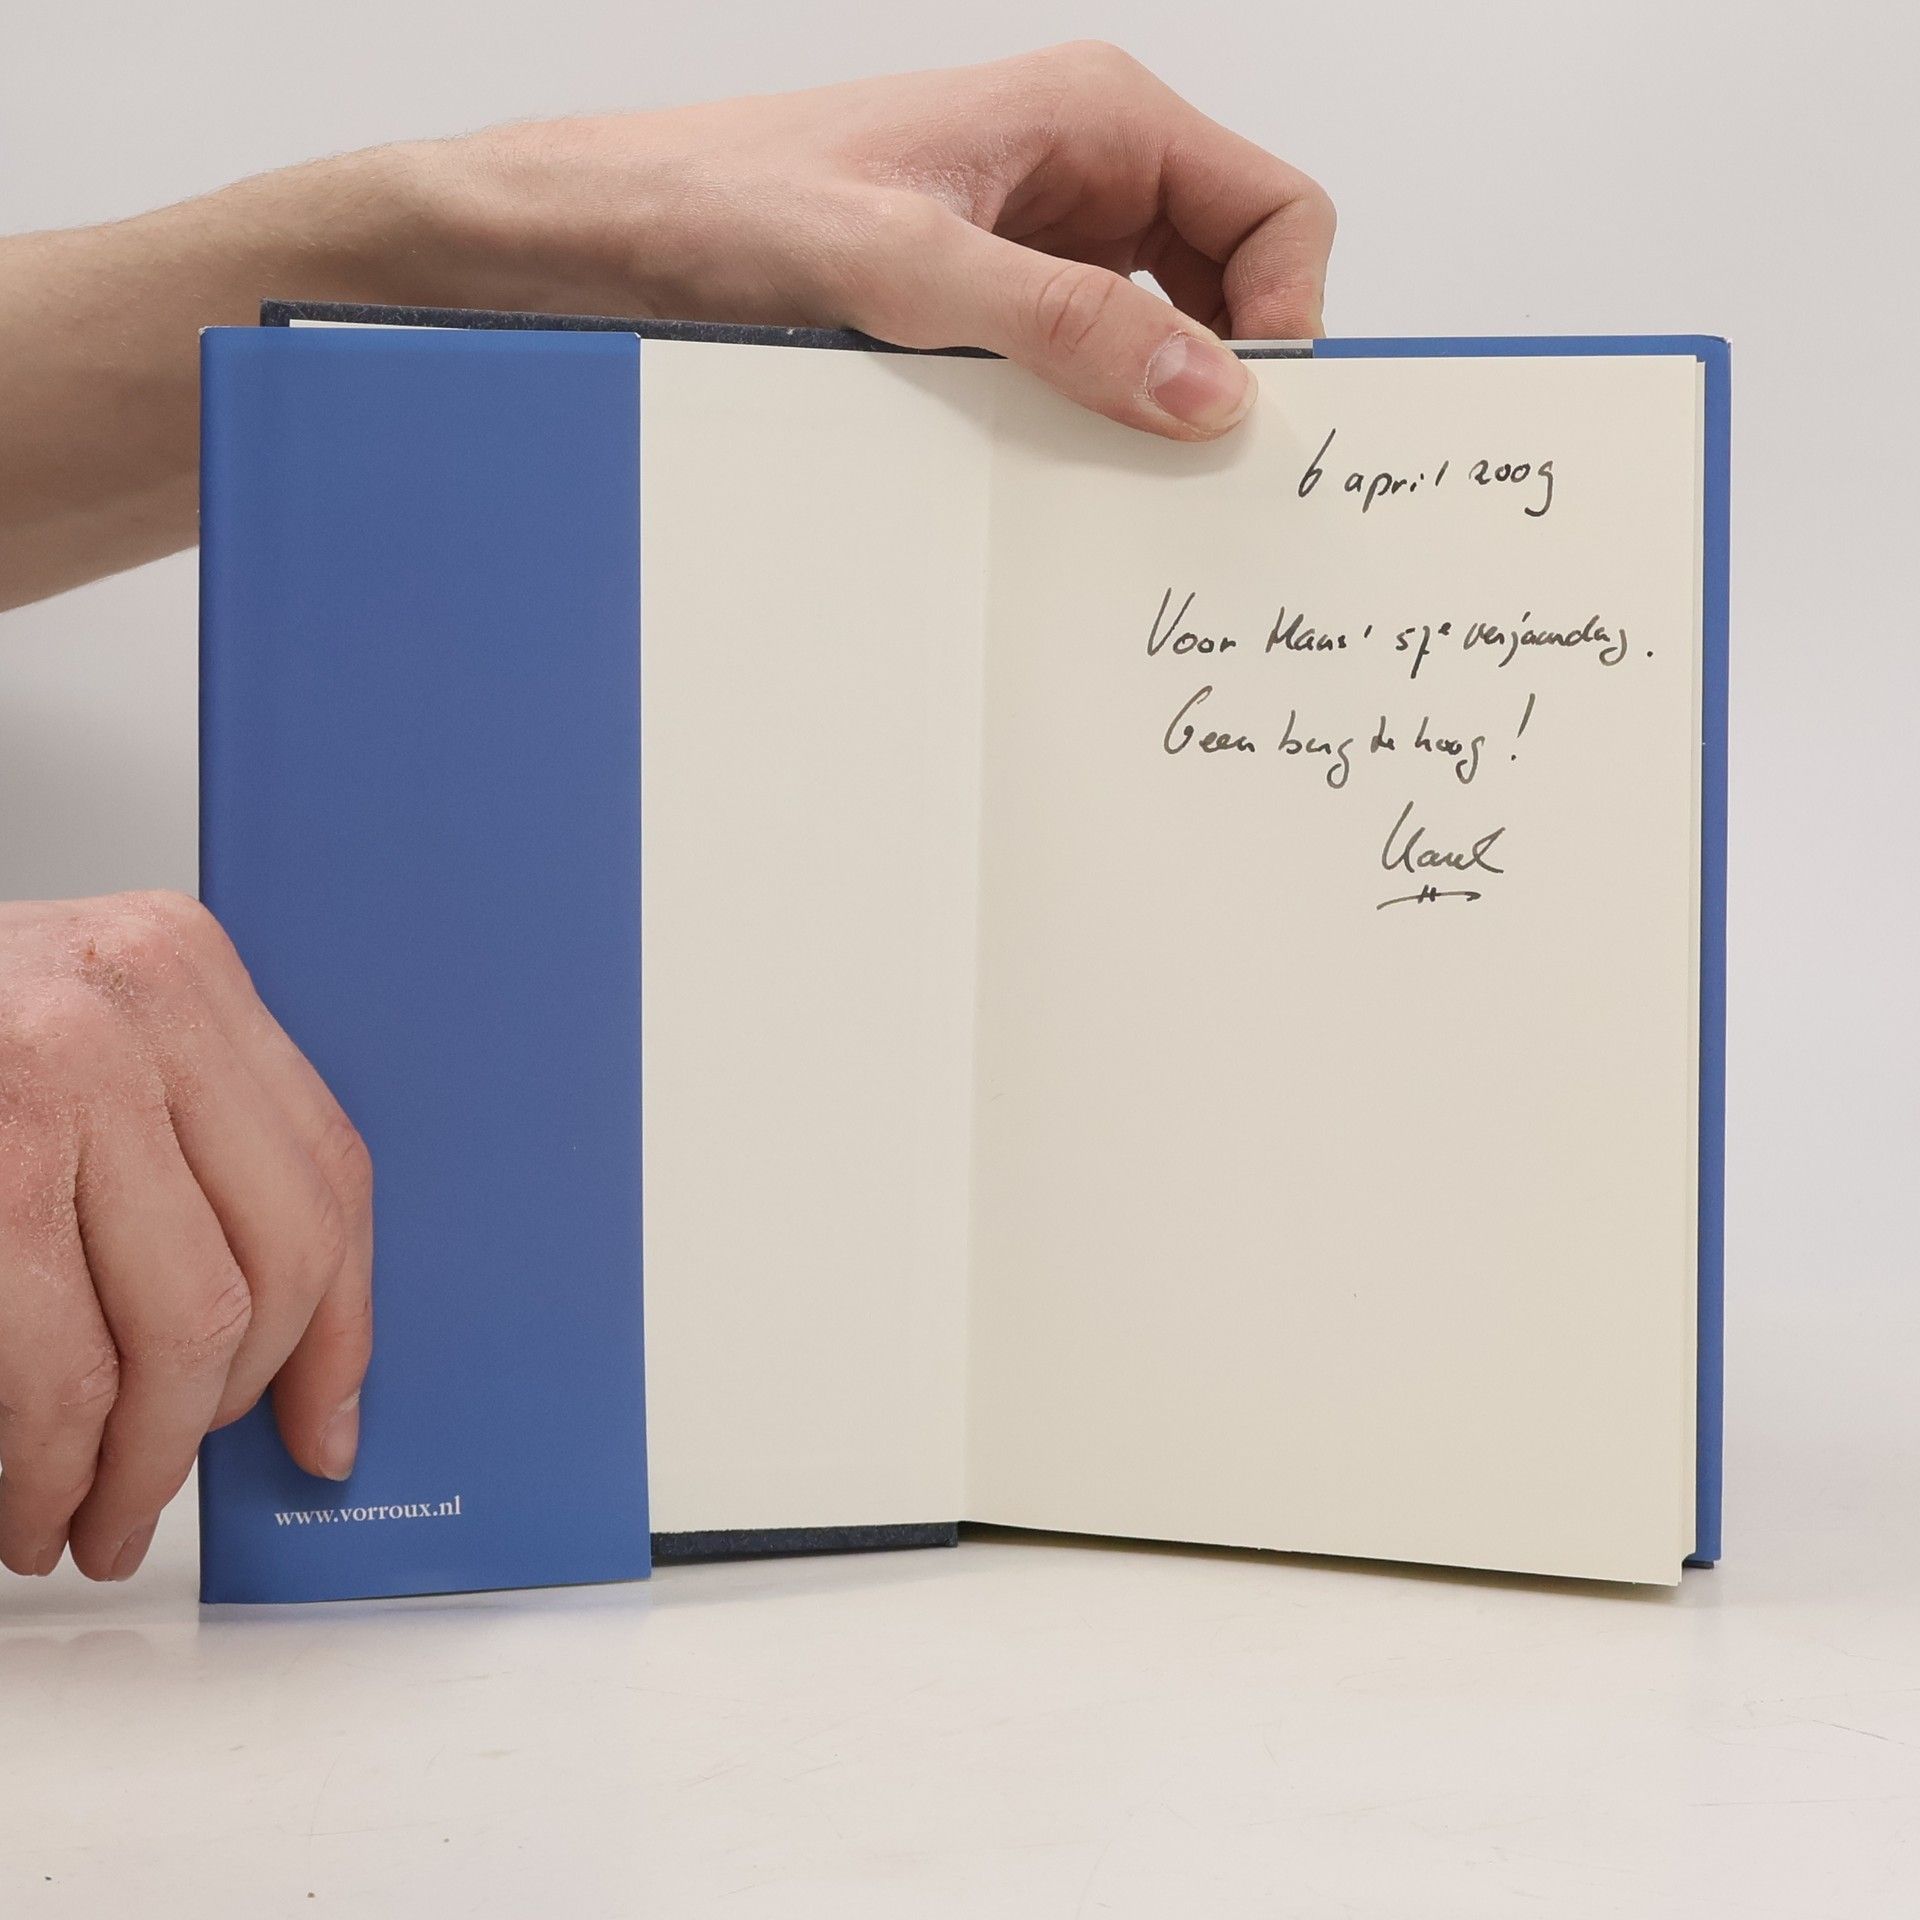 6 april 2009
Voor Maas' 57e verjaardag.
Geen berg te hoog!
Karel
www.vorroux.nl